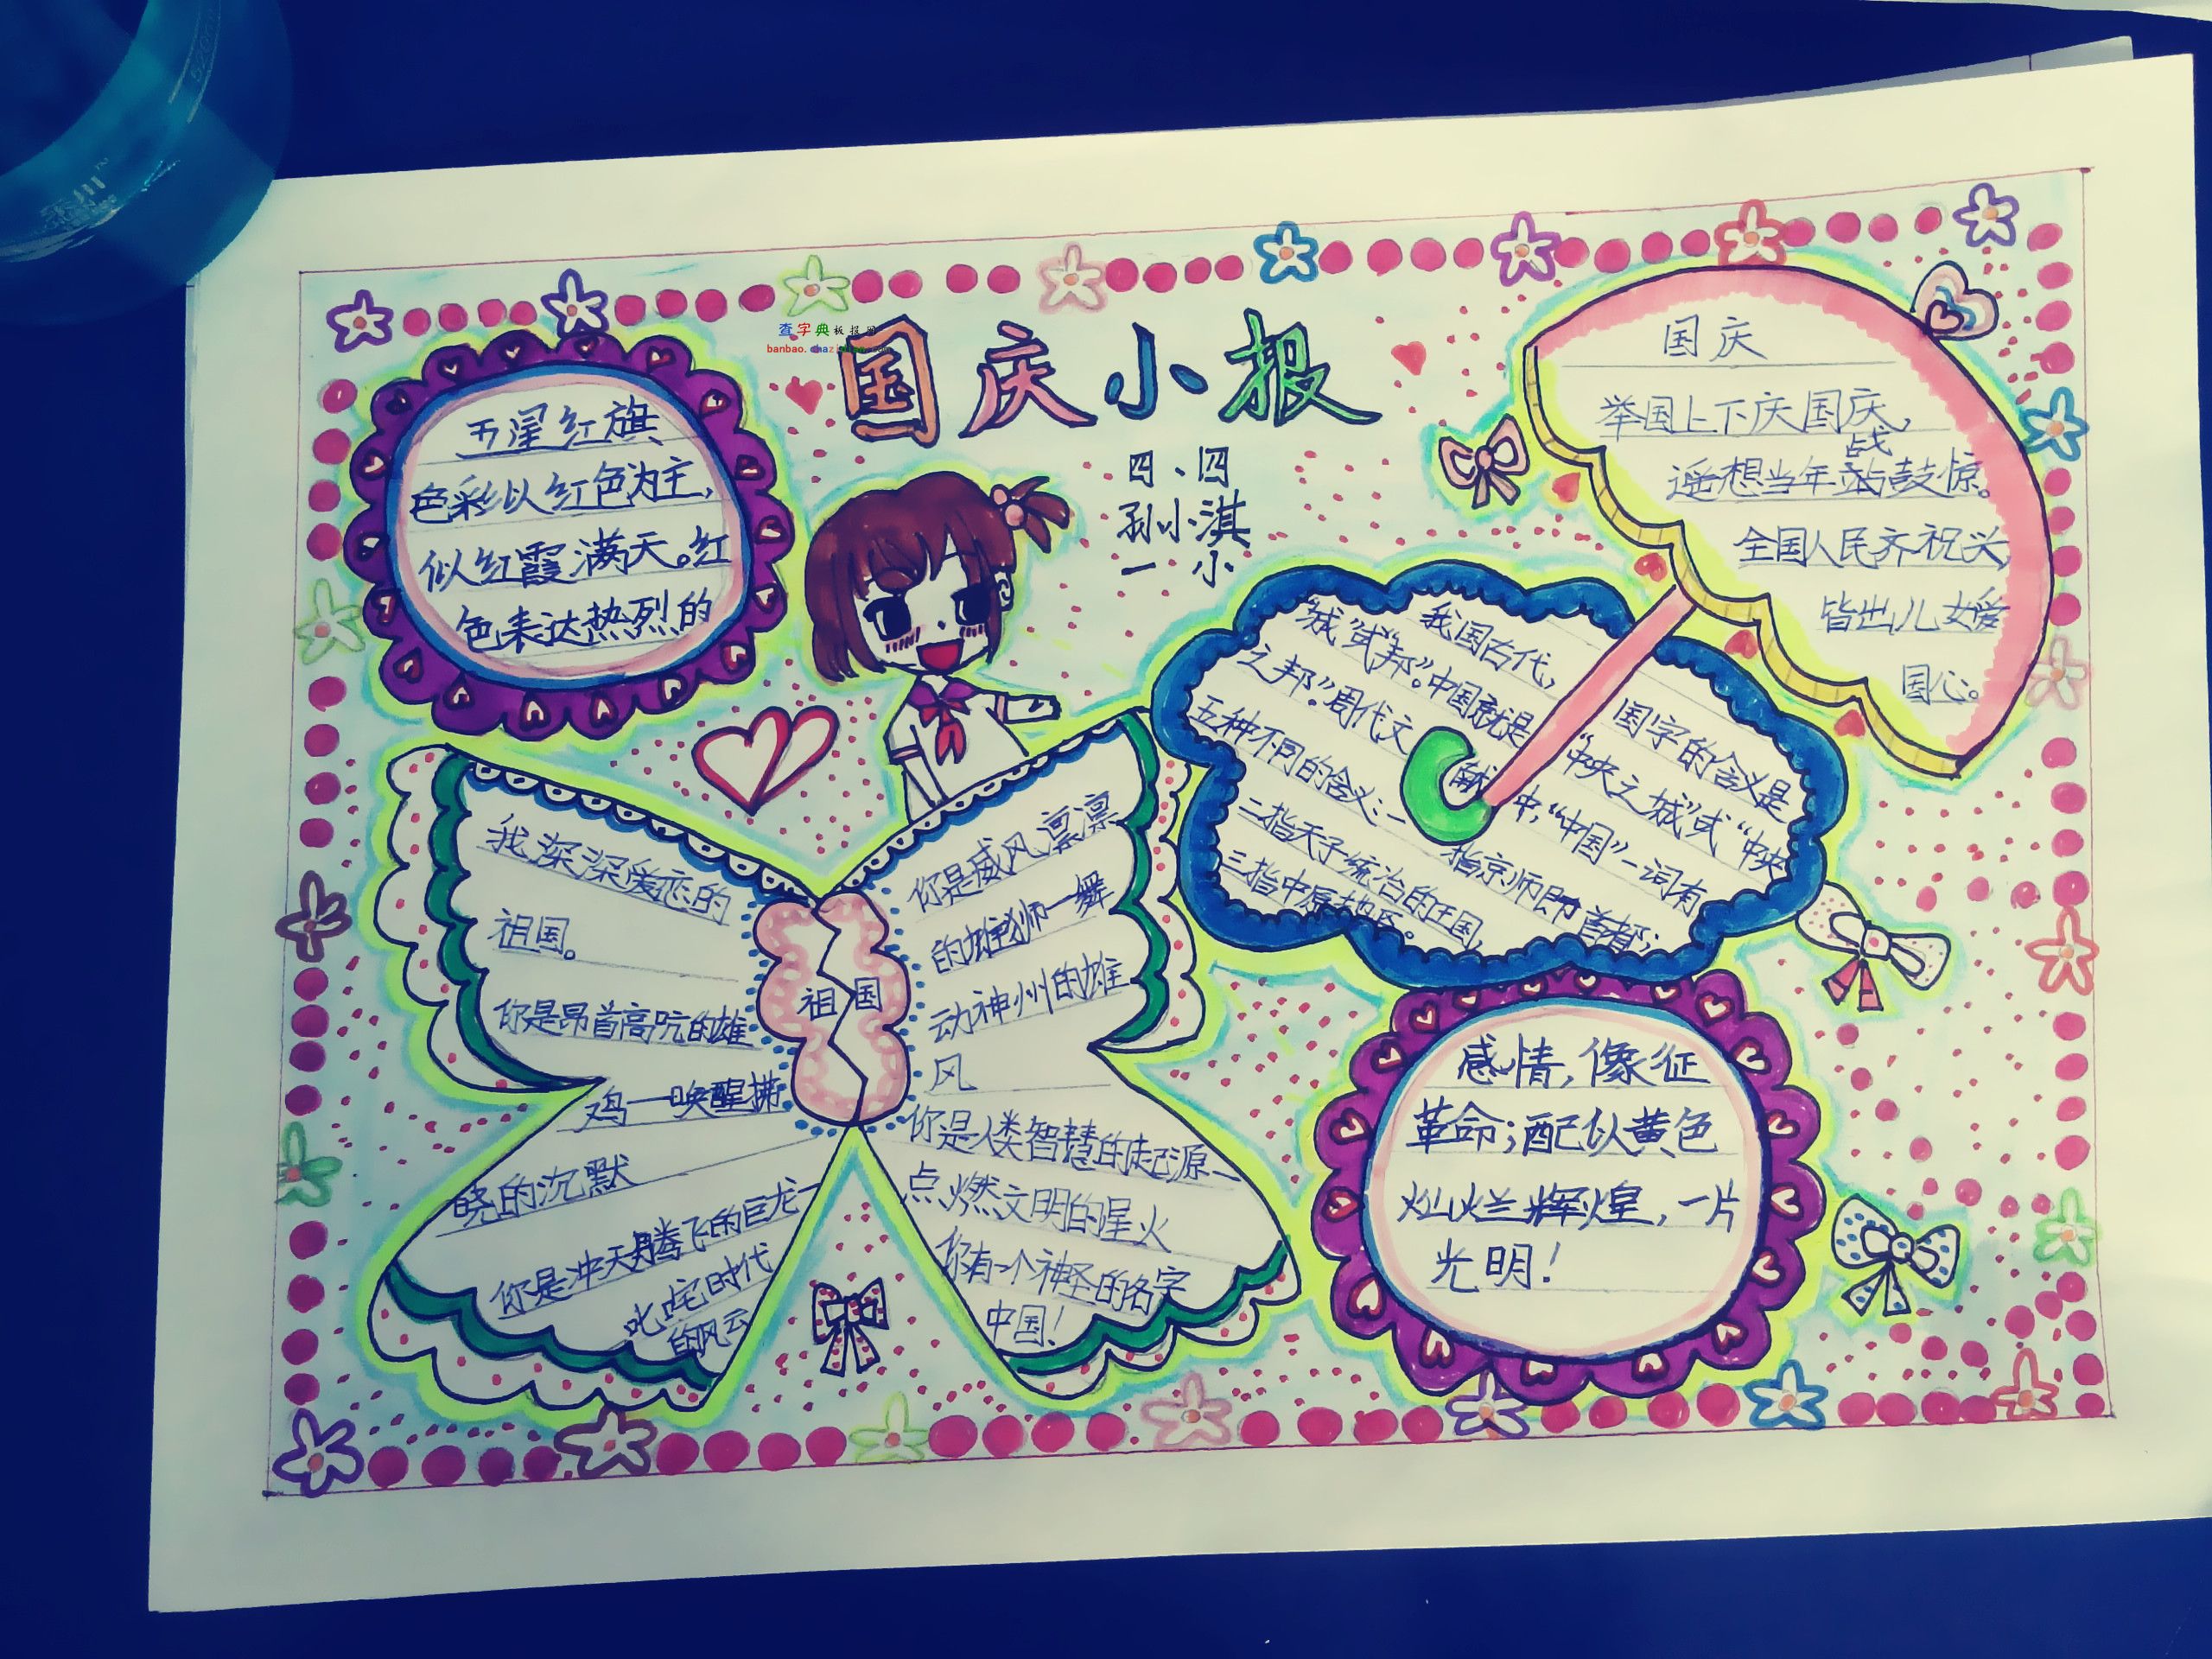 查字典板报网
国庆小报
四、四
孙小淇
一小
五星红旗
色彩以红色为主，
似红霞满天。红
色来达热烈的
国庆
举国上下庆国庆，
遥想当年战鼓惊。
全国人民齐祝兴，
皆出儿女爱
国心。
我国古代，国字的含义是
“城”或“邦”。中国就是“中央之城”或“中央
之邦”。周代文献中，“中国”一词有
五种不同的含义：一指京师即首都；
二指天子统治的王国，
三指中原地区。
我深深爱恋的
祖国。
你是昂首高吭的雄
鸡一唤醒拂
晓的沉默
你是冲天腾飞的巨龙一
叱咤时代
的风云
祖国
你是威风凛凛
的雄狮一舞
动神州的雄
风
你是人类智慧的起源一
点燃文明的星火
你有一个神圣的名字
中国！
感情，像征
革命；配似黄色
灿烂辉煌，一片
光明！